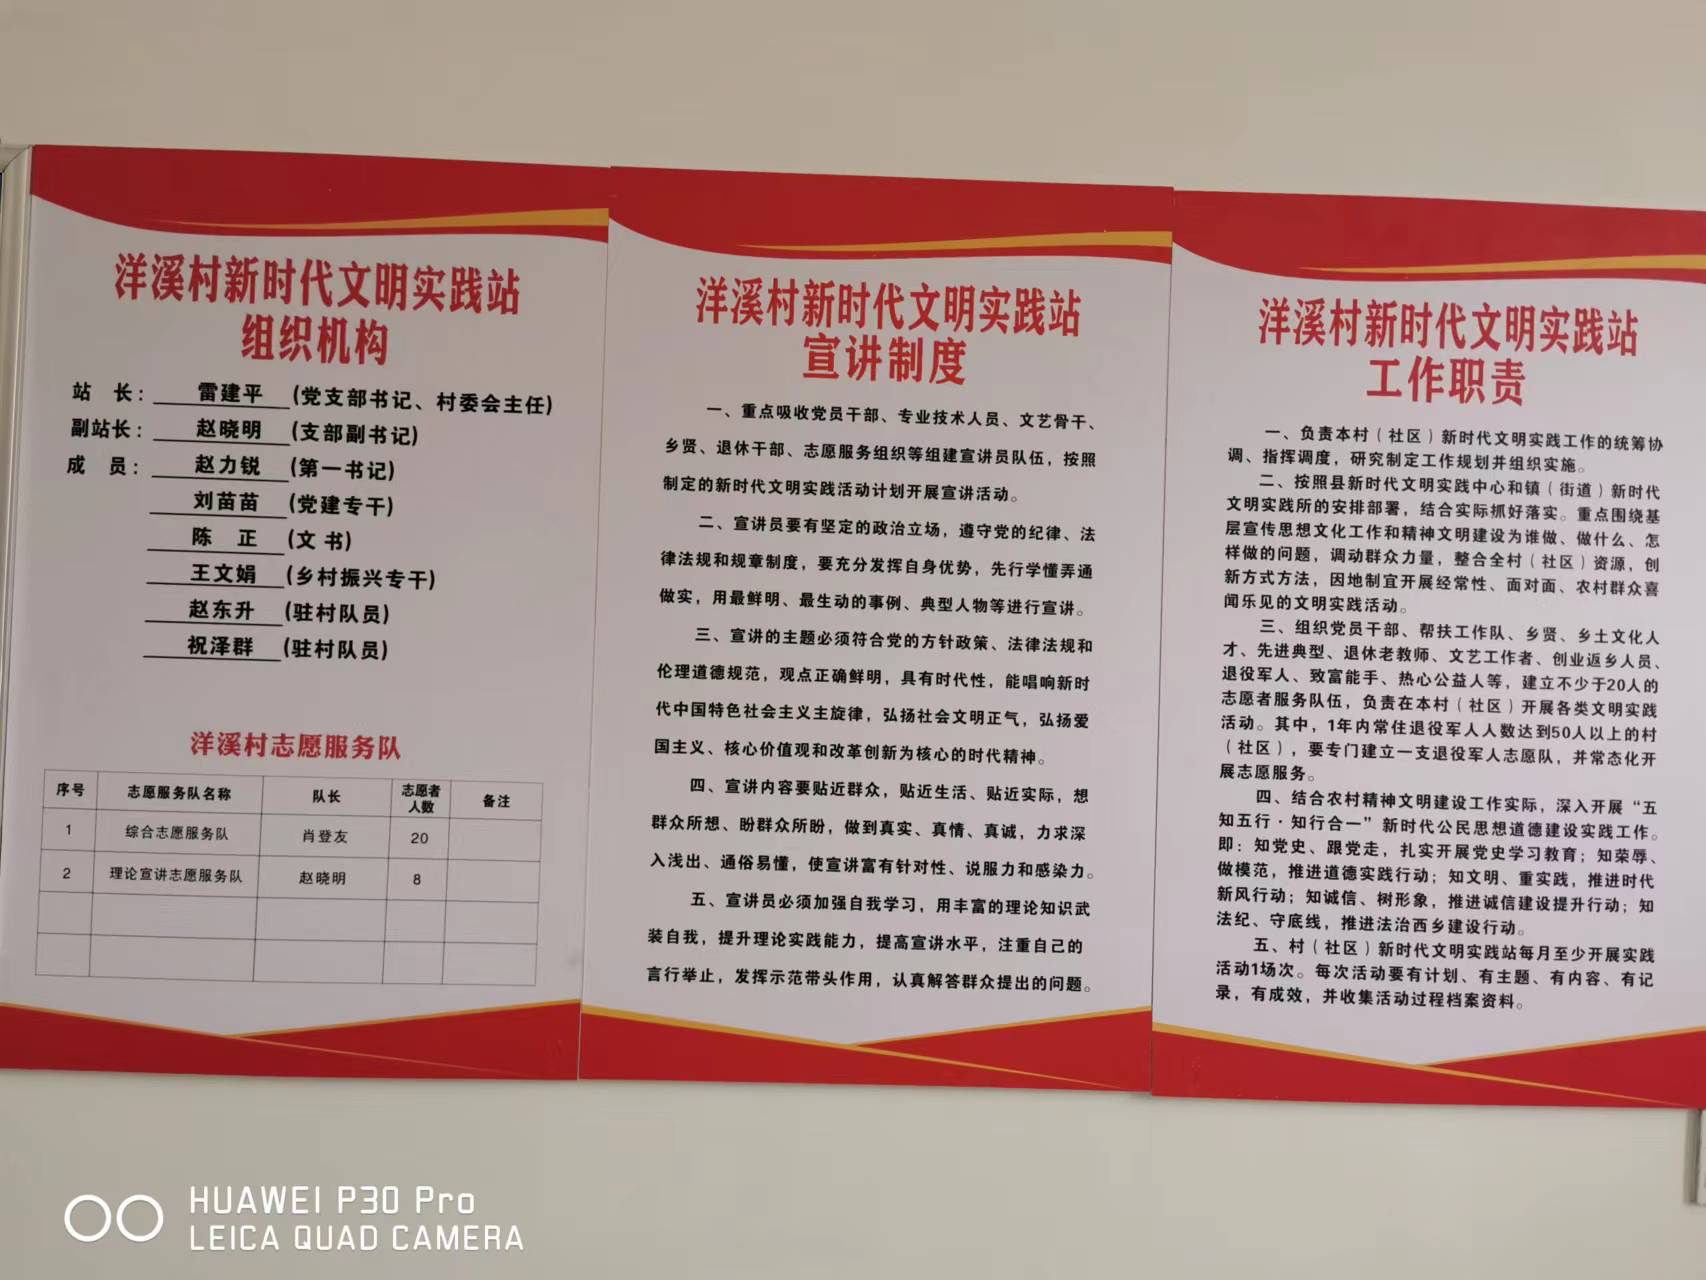 洋溪村新时代文明实践站
组织机构
站 长: 雷建平 (党支部书记、村委会主任)
副站长: 赵晓明 (支部副书记)
成 员: 赵力锐 (第一书记)
刘苗苗 (党建专干)
陈 正 (文 书)
王文娟 (乡村振兴专干)
赵东升 (驻村队员)
祝泽群 (驻村队员)
洋溪村志愿服务队
序号 志愿服务队名称 队长 志愿者人数 备注
1 综合志愿服务队 肖登友 20
2 理论宣讲志愿服务队 赵晓明 8
洋溪村新时代文明实践站
宣讲制度
一、重点吸收党员干部、专业技术人员、文艺骨干、
乡贤、退休干部、志愿服务组织等组建宣讲员队伍，按照
制定的新时代文明实践活动计划开展宣讲活动。
二、宣讲员要有坚定的政治立场，遵守党的纪律、法
律法规和规章制度，要充分发挥自身优势，先行学懂弄通
做实，用最鲜明、最生动的事例、典型人物等进行宣讲。
三、宣讲的主题必须符合党的方针政策、法律法规和
伦理道德规范，观点正确鲜明，具有时代性，能唱响新时
代中国特色社会主义主旋律，弘扬社会文明正气，弘扬爱
国主义、核心价值观和改革创新为核心的时代精神。
四、宣讲内容要贴近群众，贴近生活、贴近实际，想
群众所想、盼群众所盼，做到真实、真情、真诚，力求深
入浅出、通俗易懂，使宣讲富有针对性、说服力和感染力。
五、宣讲员必须加强自我学习，用丰富的理论知识武
装自我，提升理论实践能力，提高宣讲水平，注重自己的
言行举止，发挥示范带头作用，认真解答群众提出的问题。
洋溪村新时代文明实践站
工作职责
一、负责本村（社区）新时代文明实践工作的统筹协
调、指挥调度，研究制定工作规划并组织实施。
二、按照县新时代文明实践中心和镇（街道）新时代
文明实践所的安排部署，结合实际抓好落实。重点围绕基
层宣传思想文化工作和精神文明建设为谁做、做什么、怎
样做的问题，调动群众力量，整合全村（社区）资源，创
新方式方法，因地制宜开展经常性、面对面、农村群众喜
闻乐见的文明实践活动。
三、组织党员干部、帮扶工作队、乡贤、乡土文化人
才、先进典型、退休老教师、文艺工作者、创业返乡人员、
退役军人、致富能手、热心公益人等，建立不少于20人的
志愿者服务队伍，负责在本村（社区）开展各类文明实践
活动。其中，1年内常住退役军人人数达到50人以上的村
（社区），要专门建立一支退役军人志愿队，并常态化开
展志愿服务。
四、结合农村精神文明建设工作实际，深入开展“五
知五行·知行合一”新时代公民思想道德建设实践工作。
即：知党史、跟党走，扎实开展党史学习教育；知荣辱、
做模范，推进道德实践行动；知文明、重实践，推进时代
新风行动；知诚信、树形象，推进诚信建设提升行动；知
法纪、守底线，推进法治西乡建设行动。
五、村（社区）新时代文明实践站每月至少开展实践
活动1场次。每次活动要有计划、有主题、有内容、有记
录，有成效，并收集活动过程档案资料。
HUAWEI P30 Pro
LEICA QUAD CAMERA